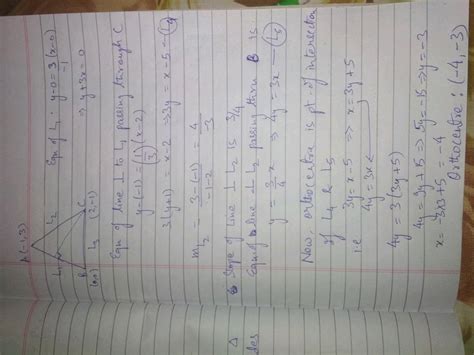 A (-1,3)
L1
L2
B
(0,0)
L3
C
(2,-1)
Eqn of L1 : y-0 = 3/-1 (x-0)
⇒ y+3x=0
Eqn of line ⊥ to L1 passing through C
y-(-1) = (1/3)(x-2)
3(y+1) = x-2 ⇒ 3y = x-5 — L4
mL2 = 3-(-1)/-1-2 = 4/-3
Slope of line ⊥ L2 is 3/4
Eqn of line ⊥ L2 passing thru B is
y = 3/4 x ⇒ 4y = 3x — L5
Now, orthocentre is pt. of intersection
of L4 & L5
i.e 3y = x-5 ⇒ x = 3y+5
4y = 3x
4y = 3(3y+5)
4y = 9y+15 ⇒ 5y = -15 ⇒ y = -3
x = -3x3+5 = -4
Orthocentre : (-4, -3)
Δ